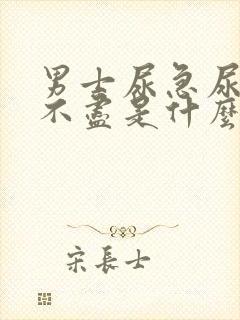 男士尿急尿
不盡是什麼
宋長士